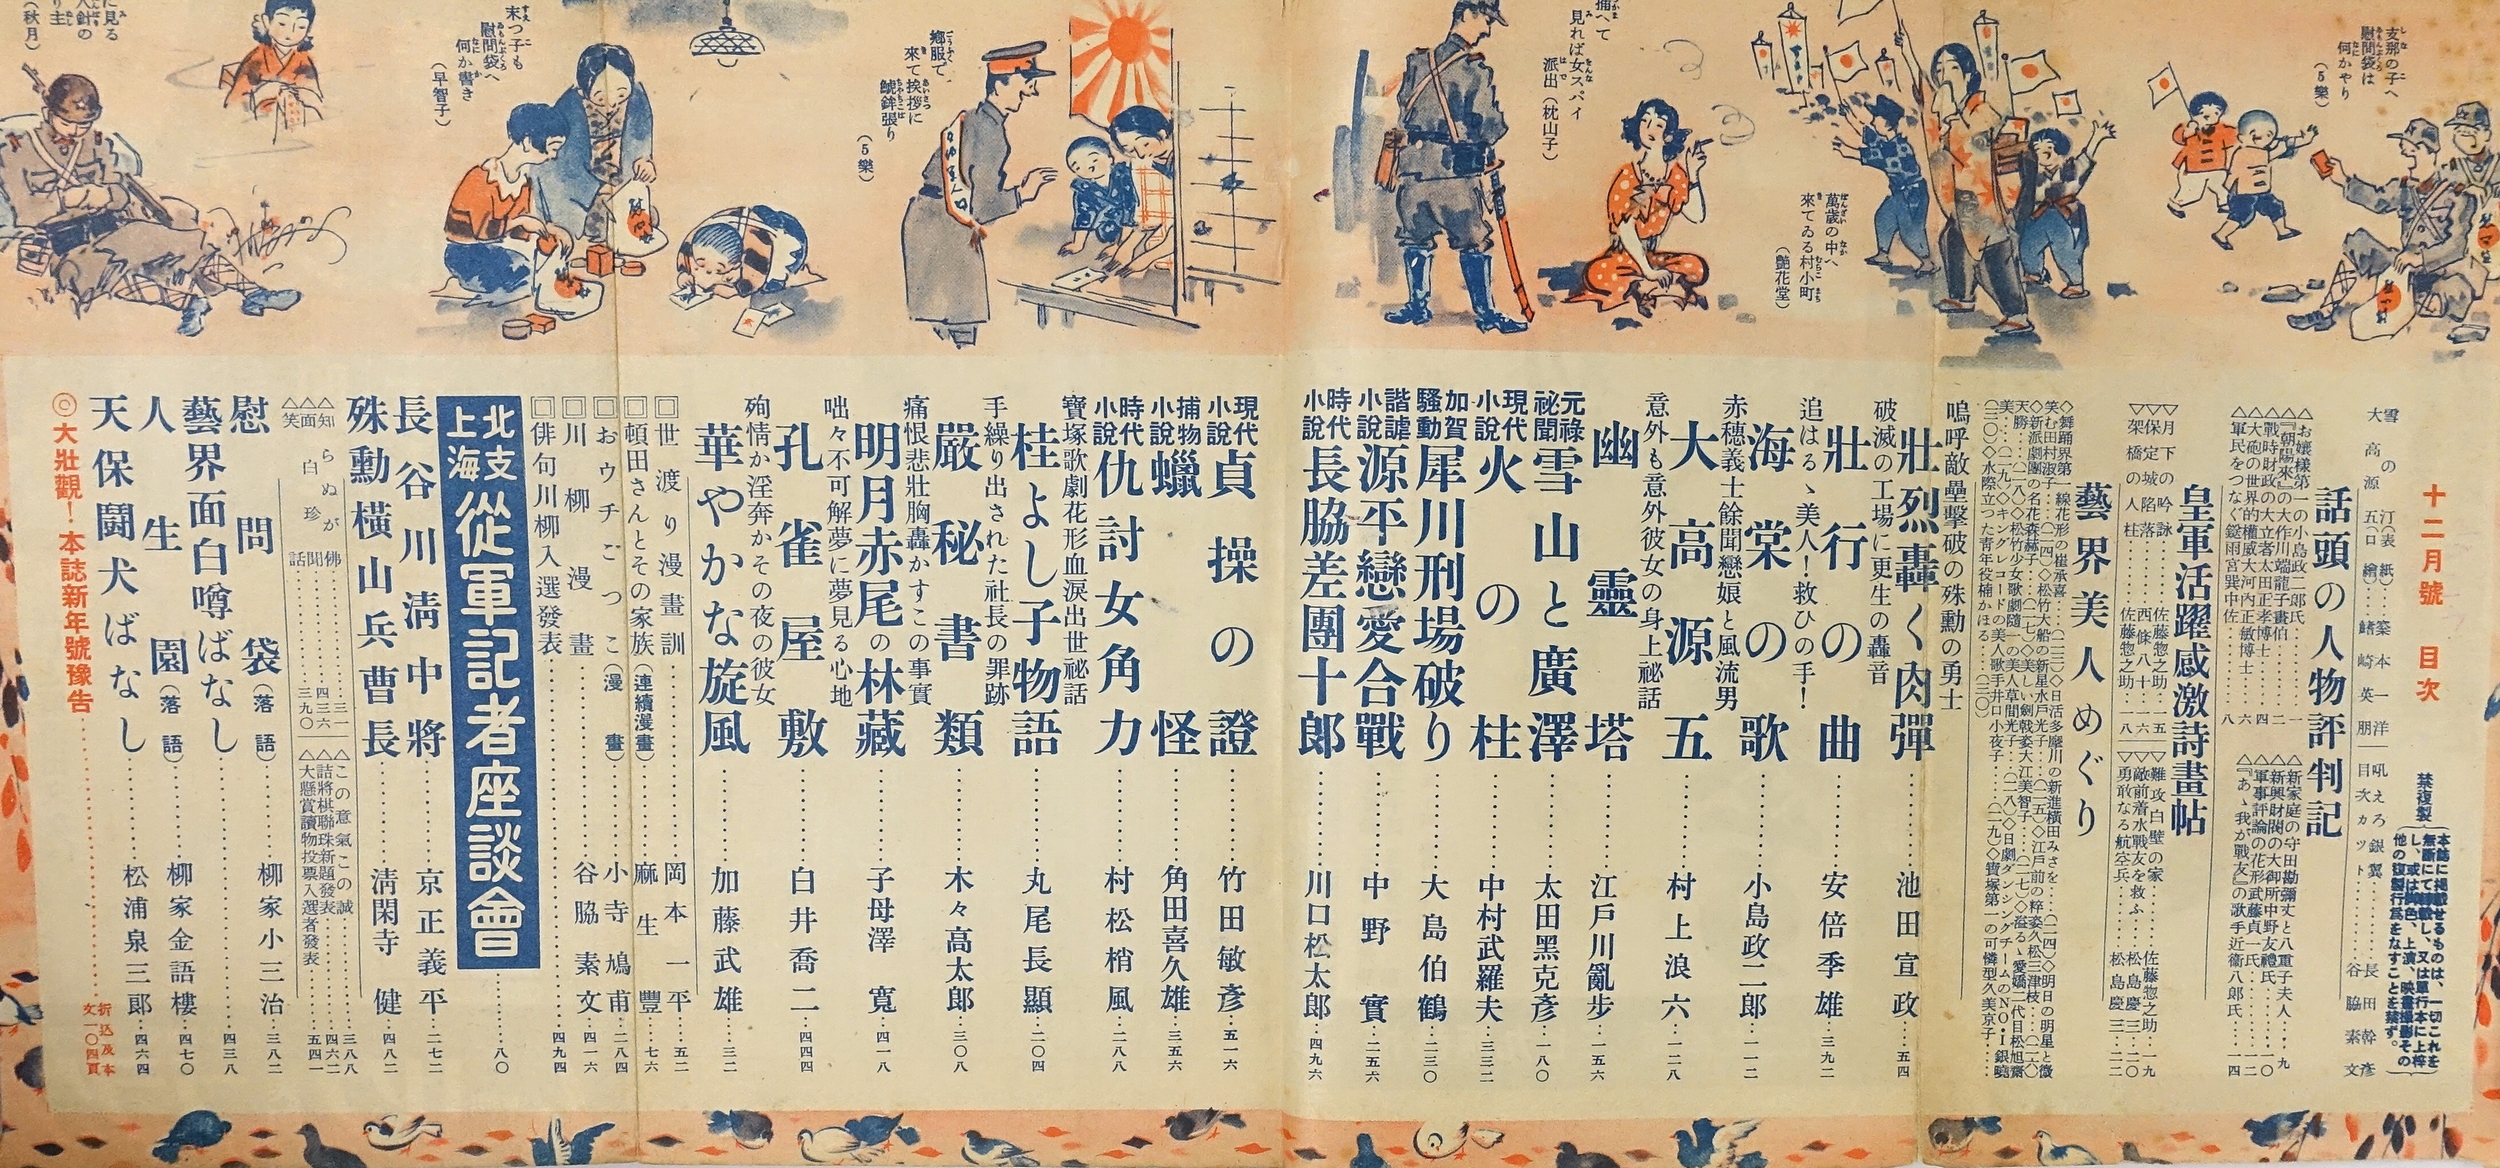 支那の子へ
慰問袋は
何かやり
(5樂)
萬歳の中へ
來てゐる村小町
(艶花堂)
捕へて
見れば女スパイ
派出(枕山子)
郷服で
來て挨拶に
鯱鉾張り
(5樂)
末つ子も
慰問袋へ
何か書き
(早智子)
に見る
人針の
り主
(秋月)
十二月號 目次
禁複製
本誌に掲載せるものは、一切これを
無斷にて轉載し、又は單行本に上梓
し、或は脚色、上演、映畫撮影その
他の複製行爲をなすことを禁ず。
雪の汀(表紙)……築本一洋
大高源五(口繪)……鰭崎英朋
吼えろ銀翼……長田幹彦
目次カット……谷脇素文
話頭の人物評判記
△お孃樣第一の小島政二郎氏……一
△『朝陽來』の大作川端龍子畫伯……二
△戰時財政の大立者太田正孝博士…四
△大砲の世界的權威大河内正敏博士…六
△軍民をつなぐ鎹雨宮巽中佐……八
△新家庭の守田勘彌丈と八重子夫人…九
△新興財閥の大御所中野友禮氏…一〇
△軍事評論の花形武藤貞一氏……一二
△『あゝ我が戰友』の歌手近衞八郎氏…一四
皇軍活躍感激詩畫帖
▽月下の吟詠……佐藤惣之助…一五
▽保定城陷落……西條八十…一六
▽架橋の人柱……佐藤惣之助…一八
▽難攻白壁の家……佐藤惣之助…一九
▽敵前着水戰友を救ふ……松島慶三…二〇
▽勇敢なる航空兵……松島慶三…二二
藝界美人めぐり
◇舞踊界第一線花形の崔承喜……(二三)◇日活多摩川の新進橫田みさを…(二四)◇明日の明星と微
笑む田村淑子…(二四)◇松竹大船の新星水戸光子…(二五)◇江戸前の粹姿久松三津枝……(二六)
◇新派劇團の名花森赫子…(二七)◇美しい劍戟姿大江美智子……(二七)◇溢るゝ愛嬌二代目松旭齋
天勝……(二八)◇松竹少女歌劇隨一の美人草間光子……(二八)◇日劇ダンシングチームのNO・1銀曉
美…(二九)◇キングレコードの美人歌手井口小夜子…(二九)◇寶塚第一の可憐型久美京子……
(三〇)◇水際立つた青年役楠かほる……(三〇)
嗚呼敵壘擊破の殊勳の勇士
壯烈轟く肉彈……池田宣政…五四
破滅の工場に更生の轟音
壯行の曲……安倍季雄…三九二
追はるゝ美人!救ひの手!
海棠の歌……小島政二郎…一一二
赤穂義士餘聞戀娘と風流男
大高源五……村上浪六…一二八
意外も意外彼女の身上祕話
幽靈塔……江戸川亂步…一五六
元祿祕聞 雪山と廣澤……太田黑克彦…一八〇
現代小說 火の柱……中村武羅夫…三三二
加賀騷動 犀川刑場破り……大島伯鶴…二三〇
諧謔小說 源平戀愛合戰……中野實…二五六
時代小說 長脇差團十郎……川口松太郎…四九六
現代小說 貞操の證……竹田敏彦…五一六
捕物小說 蠟怪……角田喜久雄…三五六
時代小說 仇討女角力……村松梢風…二八八
寶塚歌劇花形血淚出世祕話
桂よし子物語……丸尾長顯…二〇四
手繰り出された社長の罪跡
嚴秘書類……木々高太郎…三〇八
痛恨悲壯胸轟かすこの事實
明月赤尾の林藏……子母澤寬…四一八
咄々不可解夢に夢見る心地
孔雀屋敷……白井喬二…四四四
殉情か淫奔かその夜の彼女
華やかな旋風……加藤武雄…三二
□世渡り漫畫訓……岡本一平…五二
□頓田さんとその家族(連續漫畫)…麻生豐…七六
□おウチごつこ(漫畫)…小寺鳩甫…二八四
□川柳漫畫……谷脇素文…四一六
□俳句川柳入選發表……四九四
北支上海 從軍記者座談會……八〇
長谷川淸中將……京正義平…二七二
殊勳橫山兵曹長……淸閑寺健…四八二
△知らぬが佛……三一
△面白新聞……四三六
△笑珍話……三九〇
△この意氣この誠……三八八
△詰將棋聯珠新題發表……四六二
△大懸賞讀物投票入選者發表……五四一
慰問袋(落語)……柳家小三治…三八二
藝界面白噂ばなし……四三八
人生園(落語)……柳家金語樓…四七〇
天保鬪犬ばなし……松浦泉三郎…四六四
◎大壯觀!本誌新年號豫告……折込及本文一〇四頁